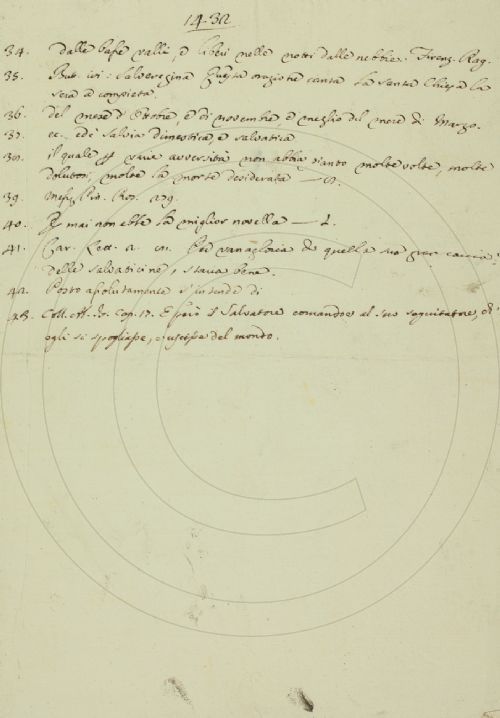 1432
34. dalle basse valli, e liberi nelle notti dalle nebbie. Firenz. Rag.
35. But. ivi: Salveregina Questa orazione canta la santa Chiesa la
sera a compieta
36. del mese d'Ottobre, e di novembre e meglio del mese di Marzo.
37. ec. edi Salvia dimestica, e salvatica
38. il quale viva avversità non abbia pianto molte volte, molte
dolutosi, molte la morte desiderata
39. Ros. 279.
40. mai non ebbe la miglior novella —
41. Car. Lett. 2. Per vanagloria di quella sua gran caccia
delle salvaticine, stava bene.
42. Posto assolutamente s'intende di
43. Coll. Ab. Is. cap. 17. E però il Salvatore comandoe al suo seguitatore, ch'
egli si spogliasse, e uscisse del mondo.